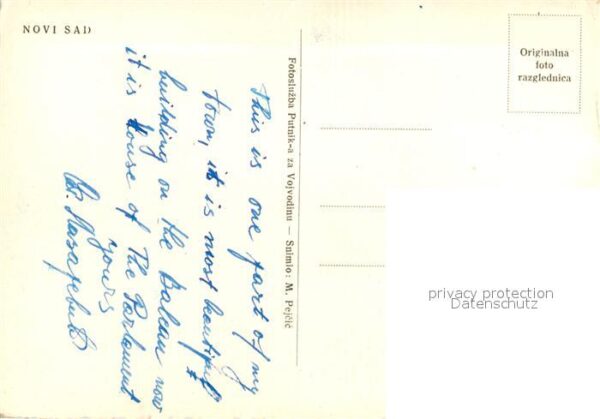 NOVI SAD
This is one part of my
town, it is most beautiful
building on the Balcan now
it is House of The Parlament
yours
Fotoslužba Putnik-a za Vojvodinu — Snimio: M. Pejčić
Originalna
foto
razglednica
privacy protection
Datenschutz